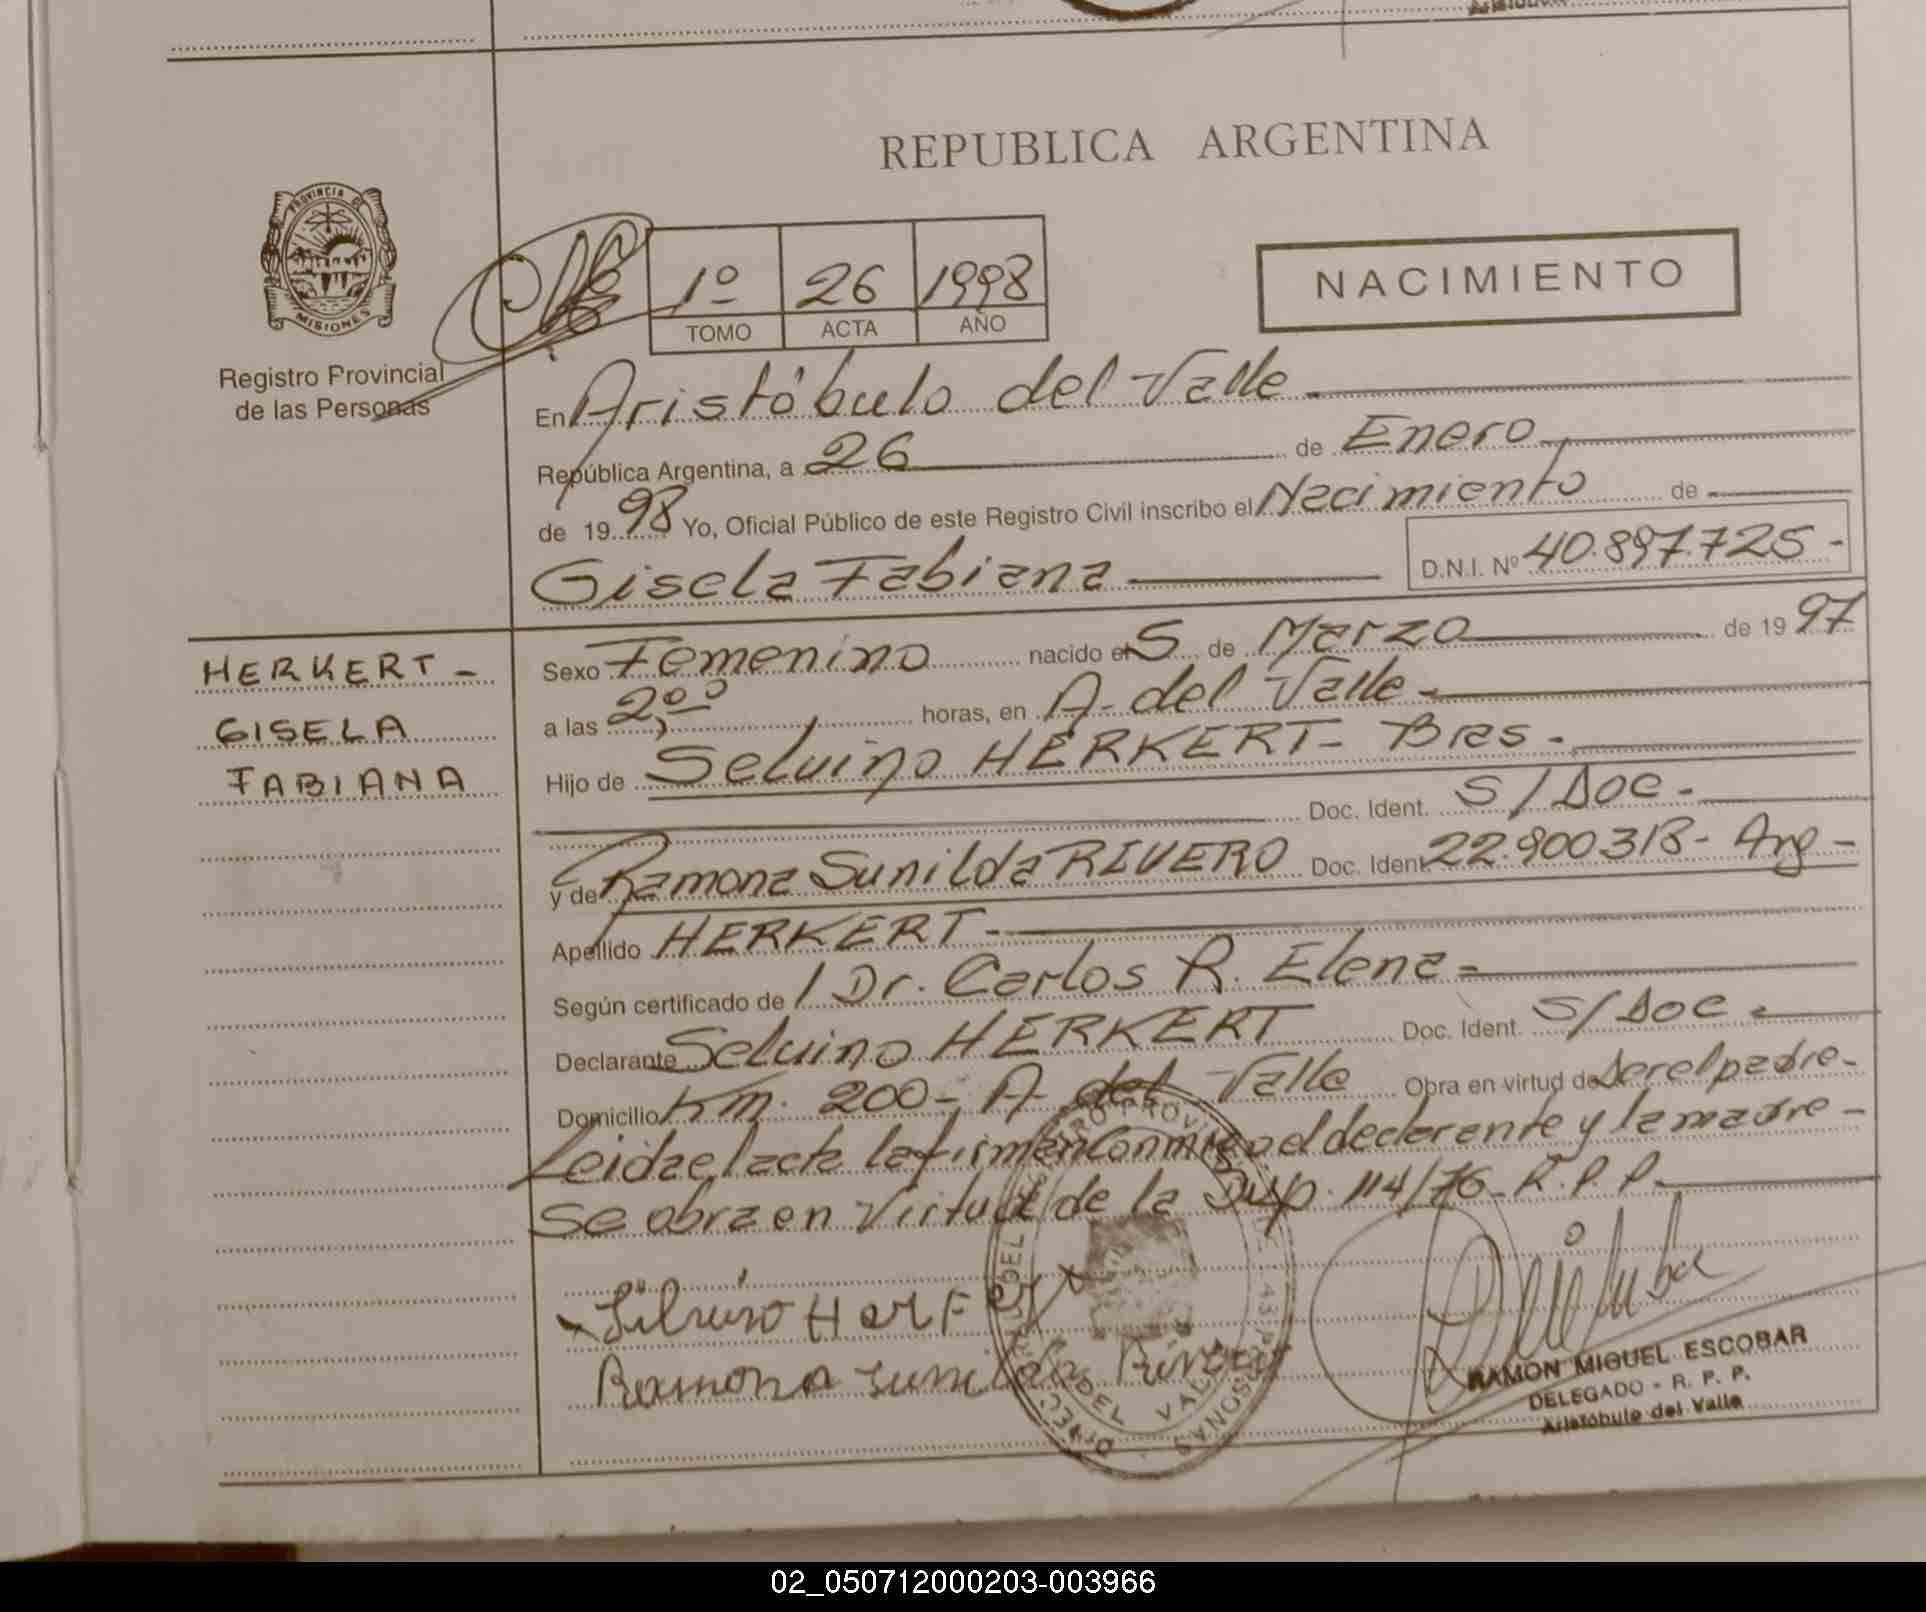 REPUBLICA ARGENTINA
PROVINCIA DE
MISIONES
Registro Provincial
de las Personas
1º 26 1998
TOMO ACTA AÑO
NACIMIENTO
En Aristóbulo del Valle
República Argentina, a 26 de Enero
de 1998 Yo, Oficial Público de este Registro Civil inscribo el Nacimiento de
Gisela Fabiana D.N.I. Nº 40.897.725-
HERKERT-
GISELA
FABIANA
Sexo Femenino nacido el 5 de Marzo de 1997
a las 2,00 horas, en A. del Valle-
Hijo de Seluino HERKERT- Bras.-
Doc. Ident. S/Doc-
y de Ramona Sunilda RIVERO Doc. Ident. 22.900318- Arg-
Apellido HERKERT-
Según certificado de / Dr. Carlos R. Elena-
Declarante Seluino HERKERT Doc. Ident. S/Doc-
Domicilio Km. 200- A. del Valle Obra en virtud de ser el padre-
Leida el acta la firman conmigo el declarante y la madre-
Se obra en virtud de la Disp. 114/76- R.P.P.-
Ramona Sunilda Rivero
RAMON MIGUEL ESCOBAR
DELEGADO - R. P. P.
Aristóbulo del Valle
02_050712000203-003966